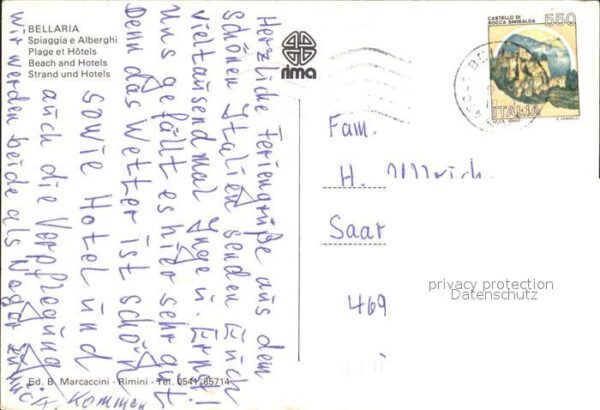 BELLARIA
Spiaggia e Alberghi
Plage et Hôtels
Beach and Hotels
Strand und Hotels
rima
CASTELLO DI
ROCCA SINIBALDA
550
ITALIA
Herzliche Feriengrüße aus dem
schönen Italien senden Euch
vieltausendmal Inge u. Ernst!
Uns gefällt es hier sehr gut
Denn das Wetter ist schön
sowie Hotel und
auch die Verpflegung
wir werden beide als Neger zurück
kommen
Fam.
H. Ullrich.
Saar
469
privacy protection
Datenschutz
Ed. B. Marcaccini - Rimini - Tel. 0541/85714